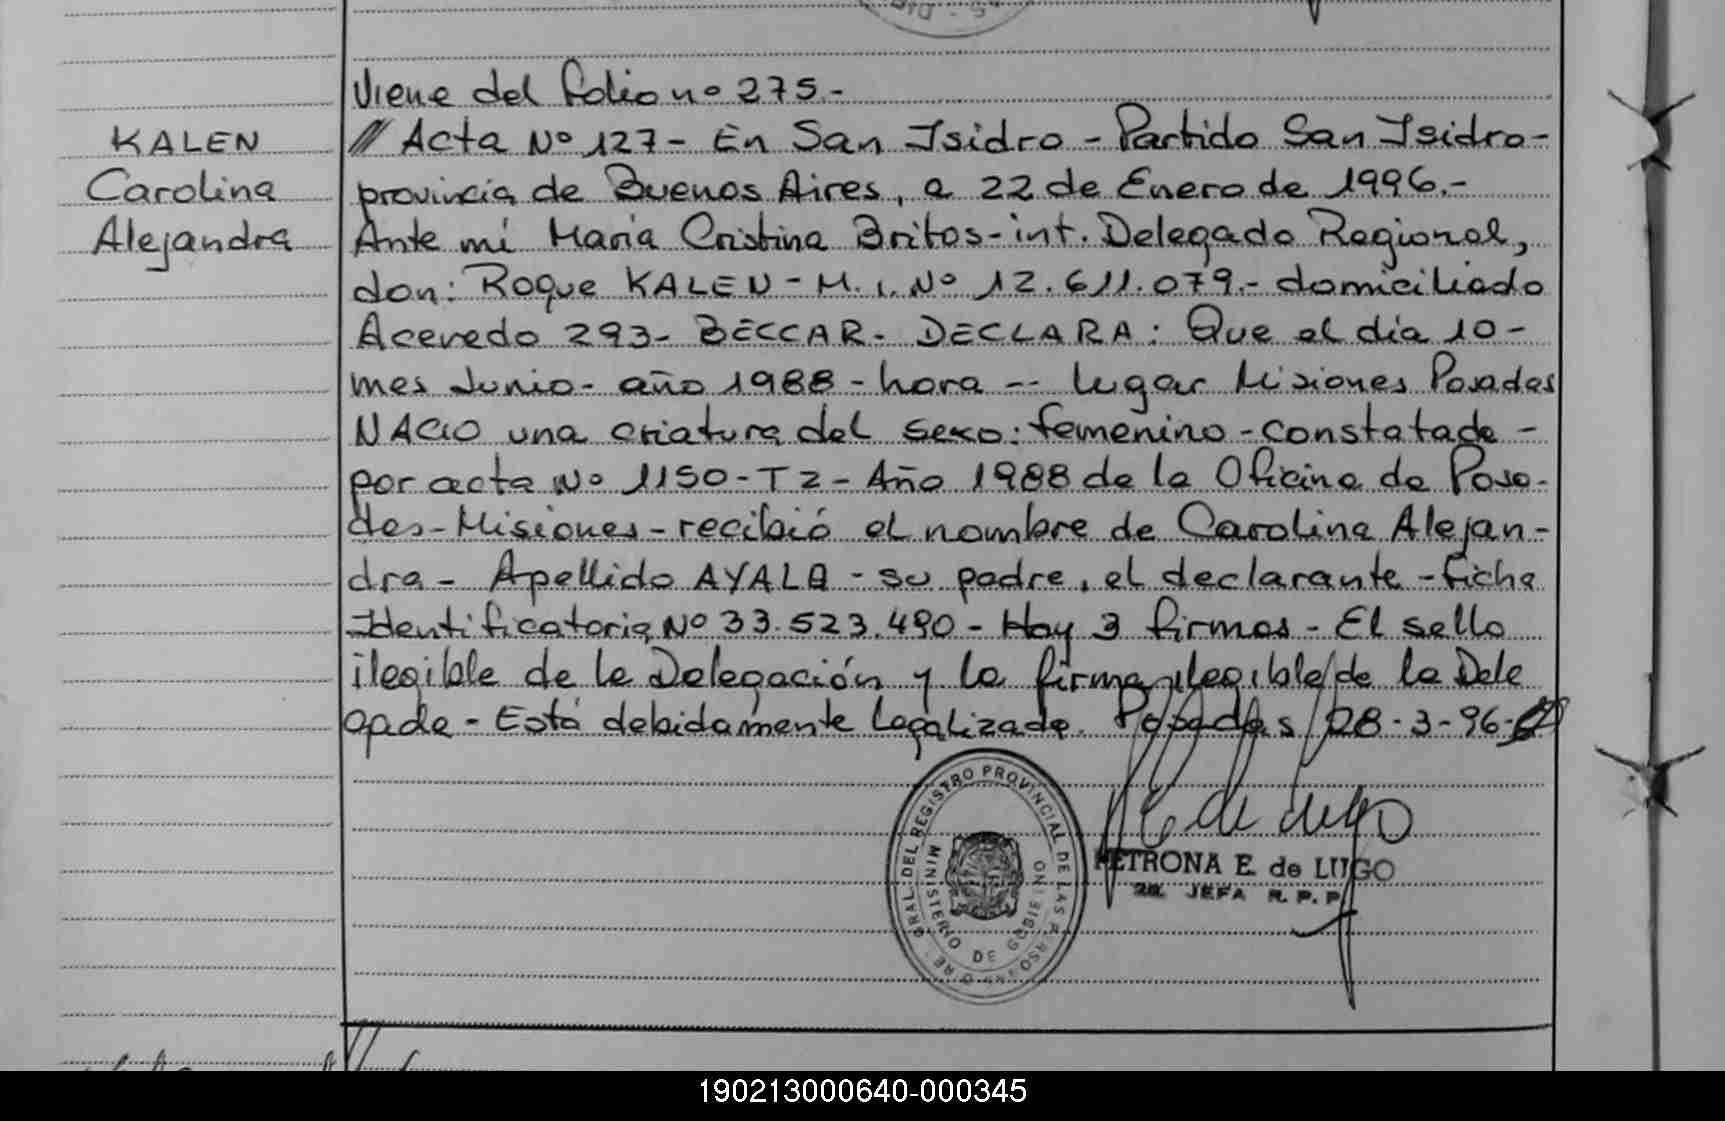 Viene del folio nº 275.-
KALEN
Carolina
Alejandra
// Acta Nº 127 - En San Isidro - Partido San Isidro -
provincia de Buenos Aires, a 22 de Enero de 1996.-
Ante mí María Cristina Britos - int. Delegado Regional,
don: Roque KALEN - M. I. Nº 12.611.079.- domiciliado
Acevedo 293 - BECCAR - DECLARA: Que el día 10 -
mes Junio - año 1988 - hora -- lugar Misiones Posadas
NACIO una criatura del sexo: femenino - constatada -
por acta Nº 1150 - T 2 - Año 1988 de la Oficina de Posa-
das - Misiones - recibió el nombre de Carolina Alejan-
dra - Apellido AYALA - su padre, el declarante - ficha
Identificatoria Nº 33.523.490 - Hay 3 firmas - El sello
ilegible de la Delegación y la firma ilegible de la Dele
gada - Está debidamente Legalizada. Posadas 28-3-96-
GRAL. DEL REGISTRO PROVINCIAL DE LAS
MINISTERIO DE GOBIERNO
PETRONA E. de LUGO
2a. JEFA R.P.P.
190213000640-000345